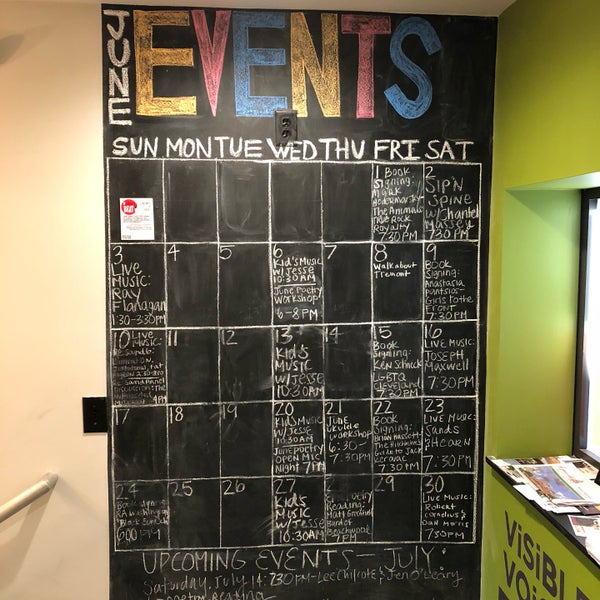 JUNE
EVENTS
SUN MON TUE WED THU FRI SAT
1 Book
Signing:
The Animal
Rock
Royalty
7:30 PM
2
SIP'N
SPINE
W/Chantel
Massey
7:30 PM
3
Live
Music:
Ray
Flanagan
1:30-3:30PM
4
5
6
Kid's Music
w/Jesse
10:30 AM
June Poetry
Workshop
6-8PM
7
8
Walkabout
Tremont
9
Book
Signing:
Anastasia
Pantsios-
Girls to the
FRONT
7:30PM
10 Live
Music:
4PM
11
12
13
Kid's
MUSIC
w/Jesse
10:30AM
14
15
Book
Signing:
Ken Schneck
LGBTQ
Cleveland
7:30 PM
16
LIVE
MUSIC:
JOSEPH
Maxwell
7:30PM
17
18
19
20
Kids Music
w/Jesse
10:30AM
June poetry
OPEN MIC
Night 7PM
21
June
Ukulele
Workshop
6:30-
7:30PM
22
Book
Signing:
Brian Hassett
The Hitchhikers
Guide to Jack
Kerouac
7:30 PM
23
Live Music:
Sands
& Hearn
7:30PM
24
6:00 PM
25
26
27
Kid's
Music
w/Jesse
10:30AM
2
Reading:
7PM
29
30
Live
Music:
Robert
Cornelius &
Dan Morris
7:30PM
UPCOMING EVENTS - JULY:
Saturday, July 14: 7:30 PM - Lee Chilcote & Jen O'Leary
Poetry Reading
VISIBLE
VOI